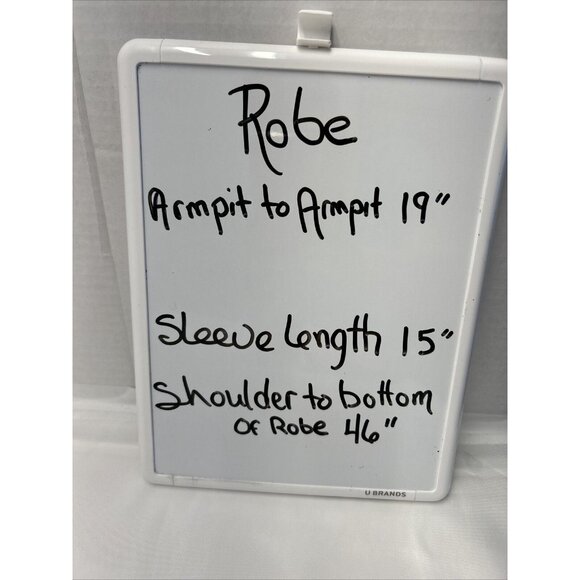 Robe
Armpit to Armpit 19"
Sleeve Length 15"
Shoulder to bottom
Of Robe 46"
U BRANDS